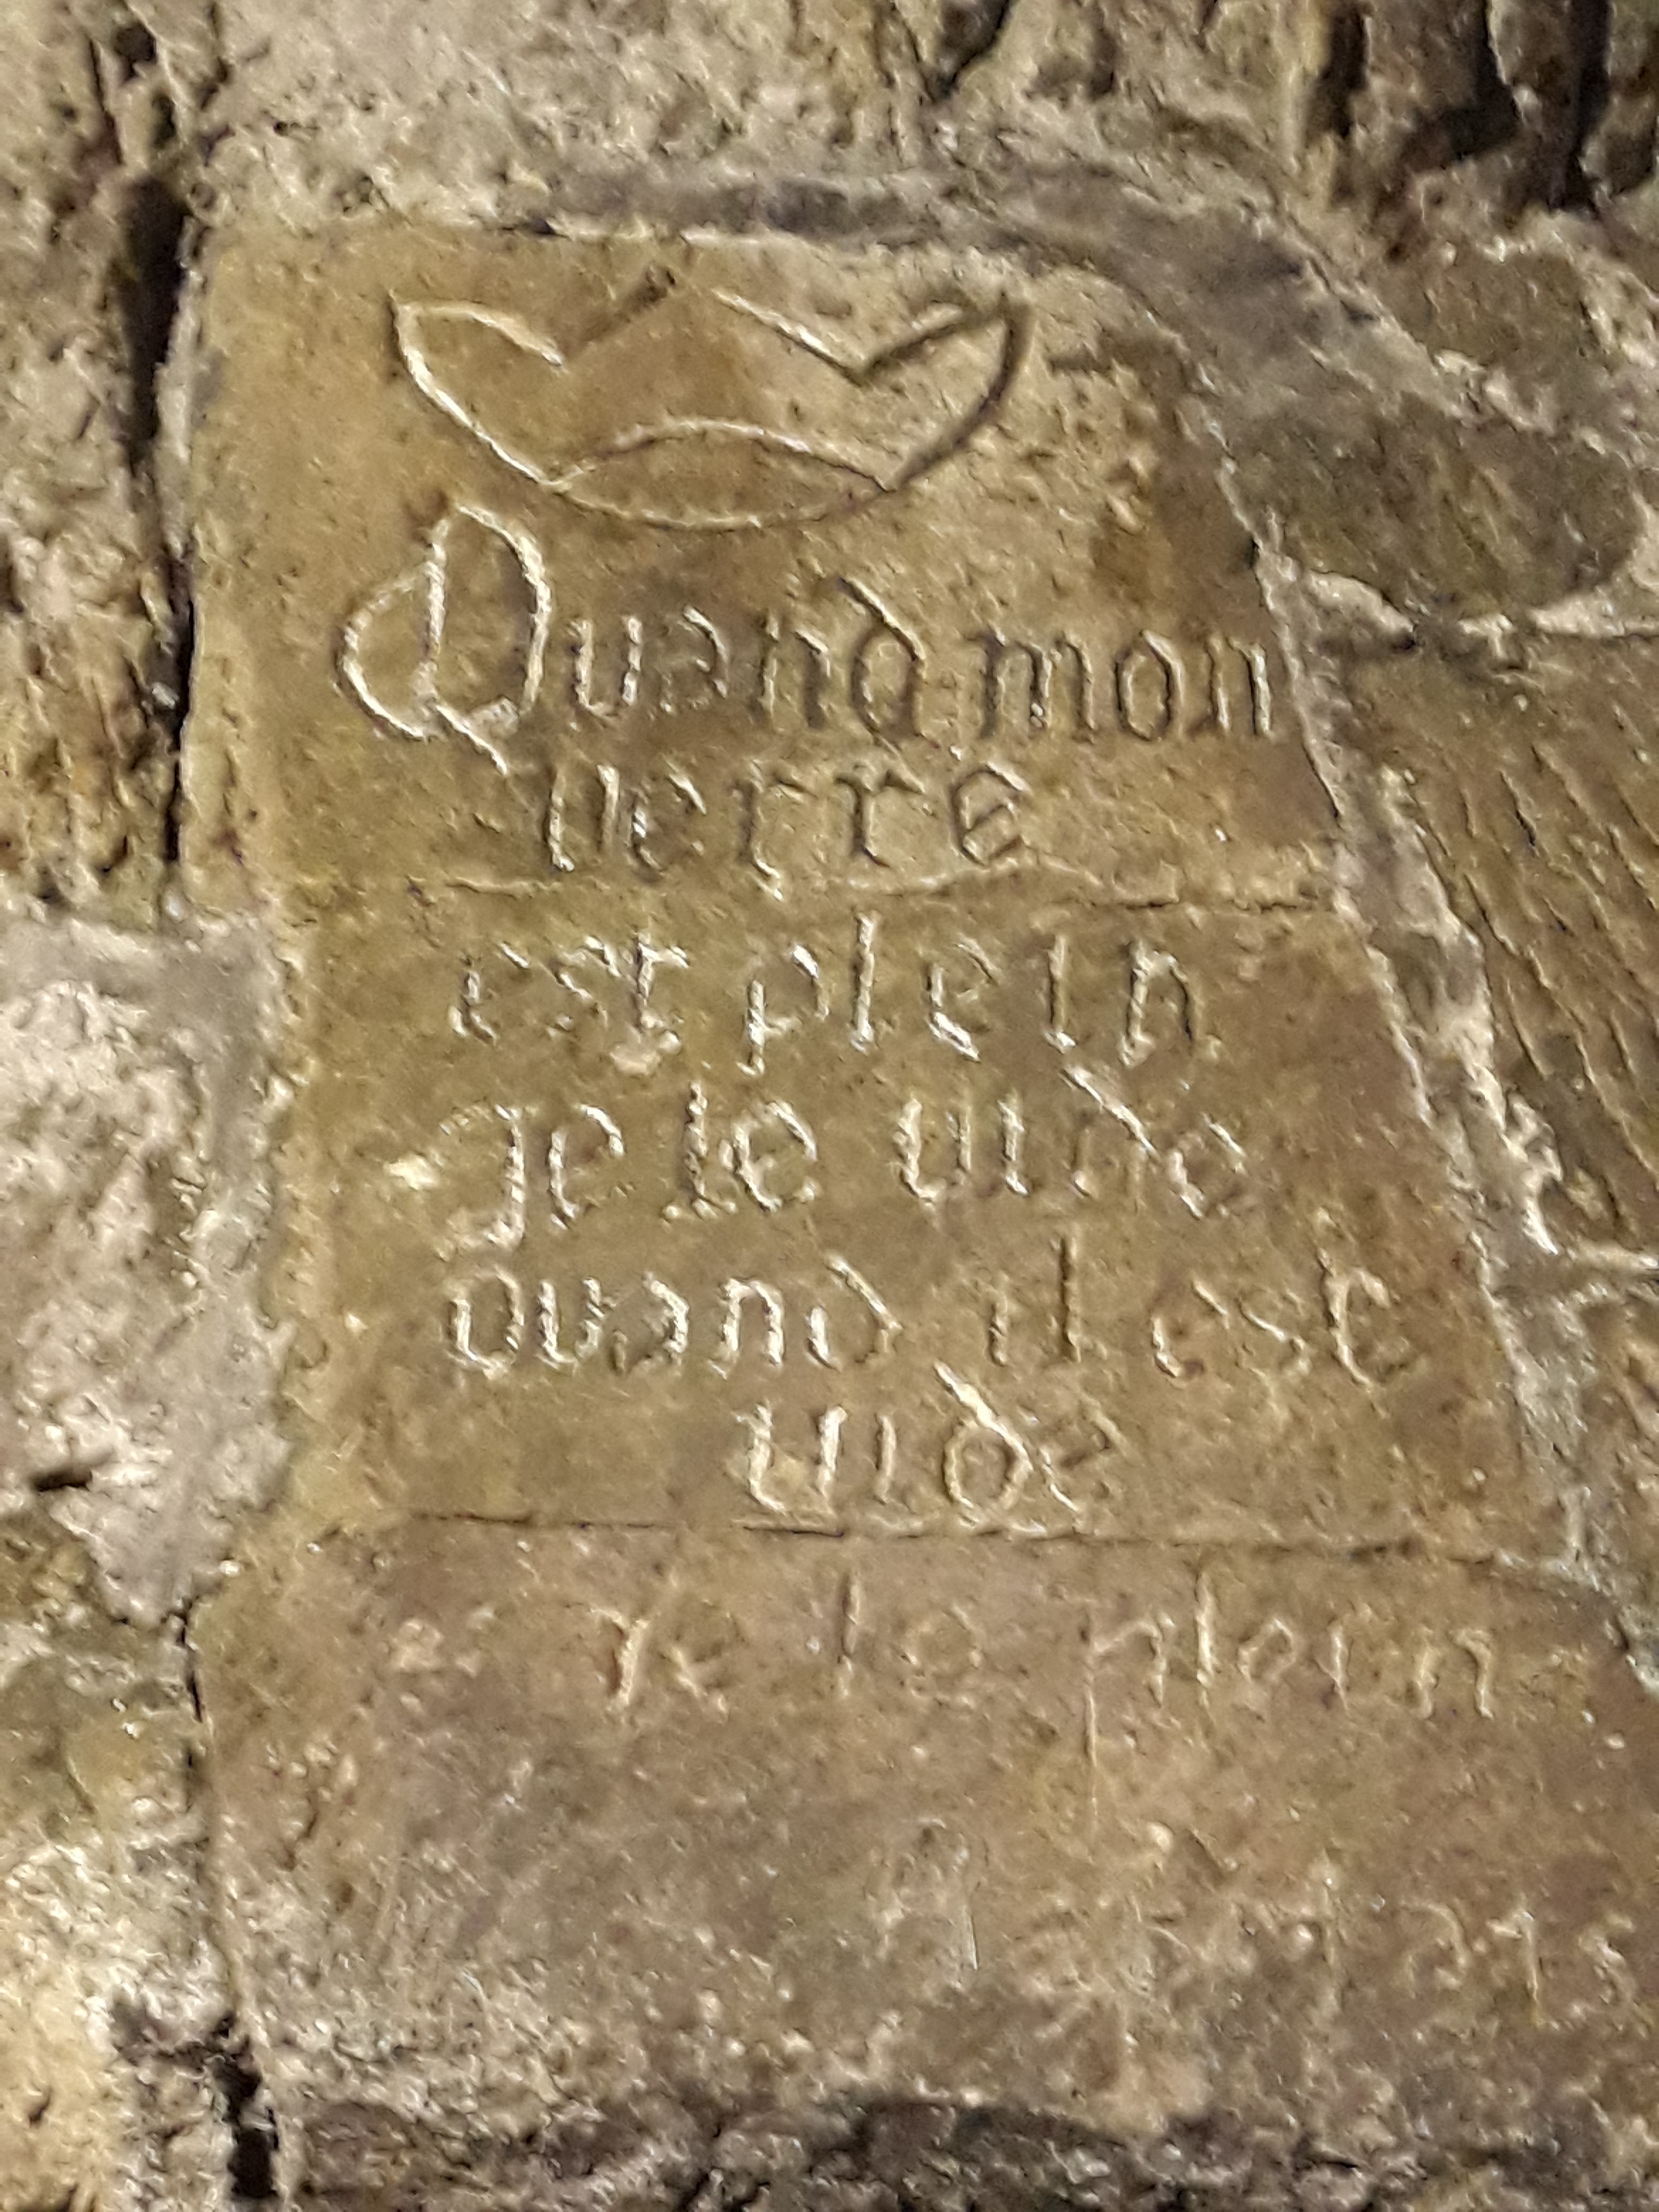 Quand mon
verre
est plein
Je le vide
Quand il est
vide
Je le plein